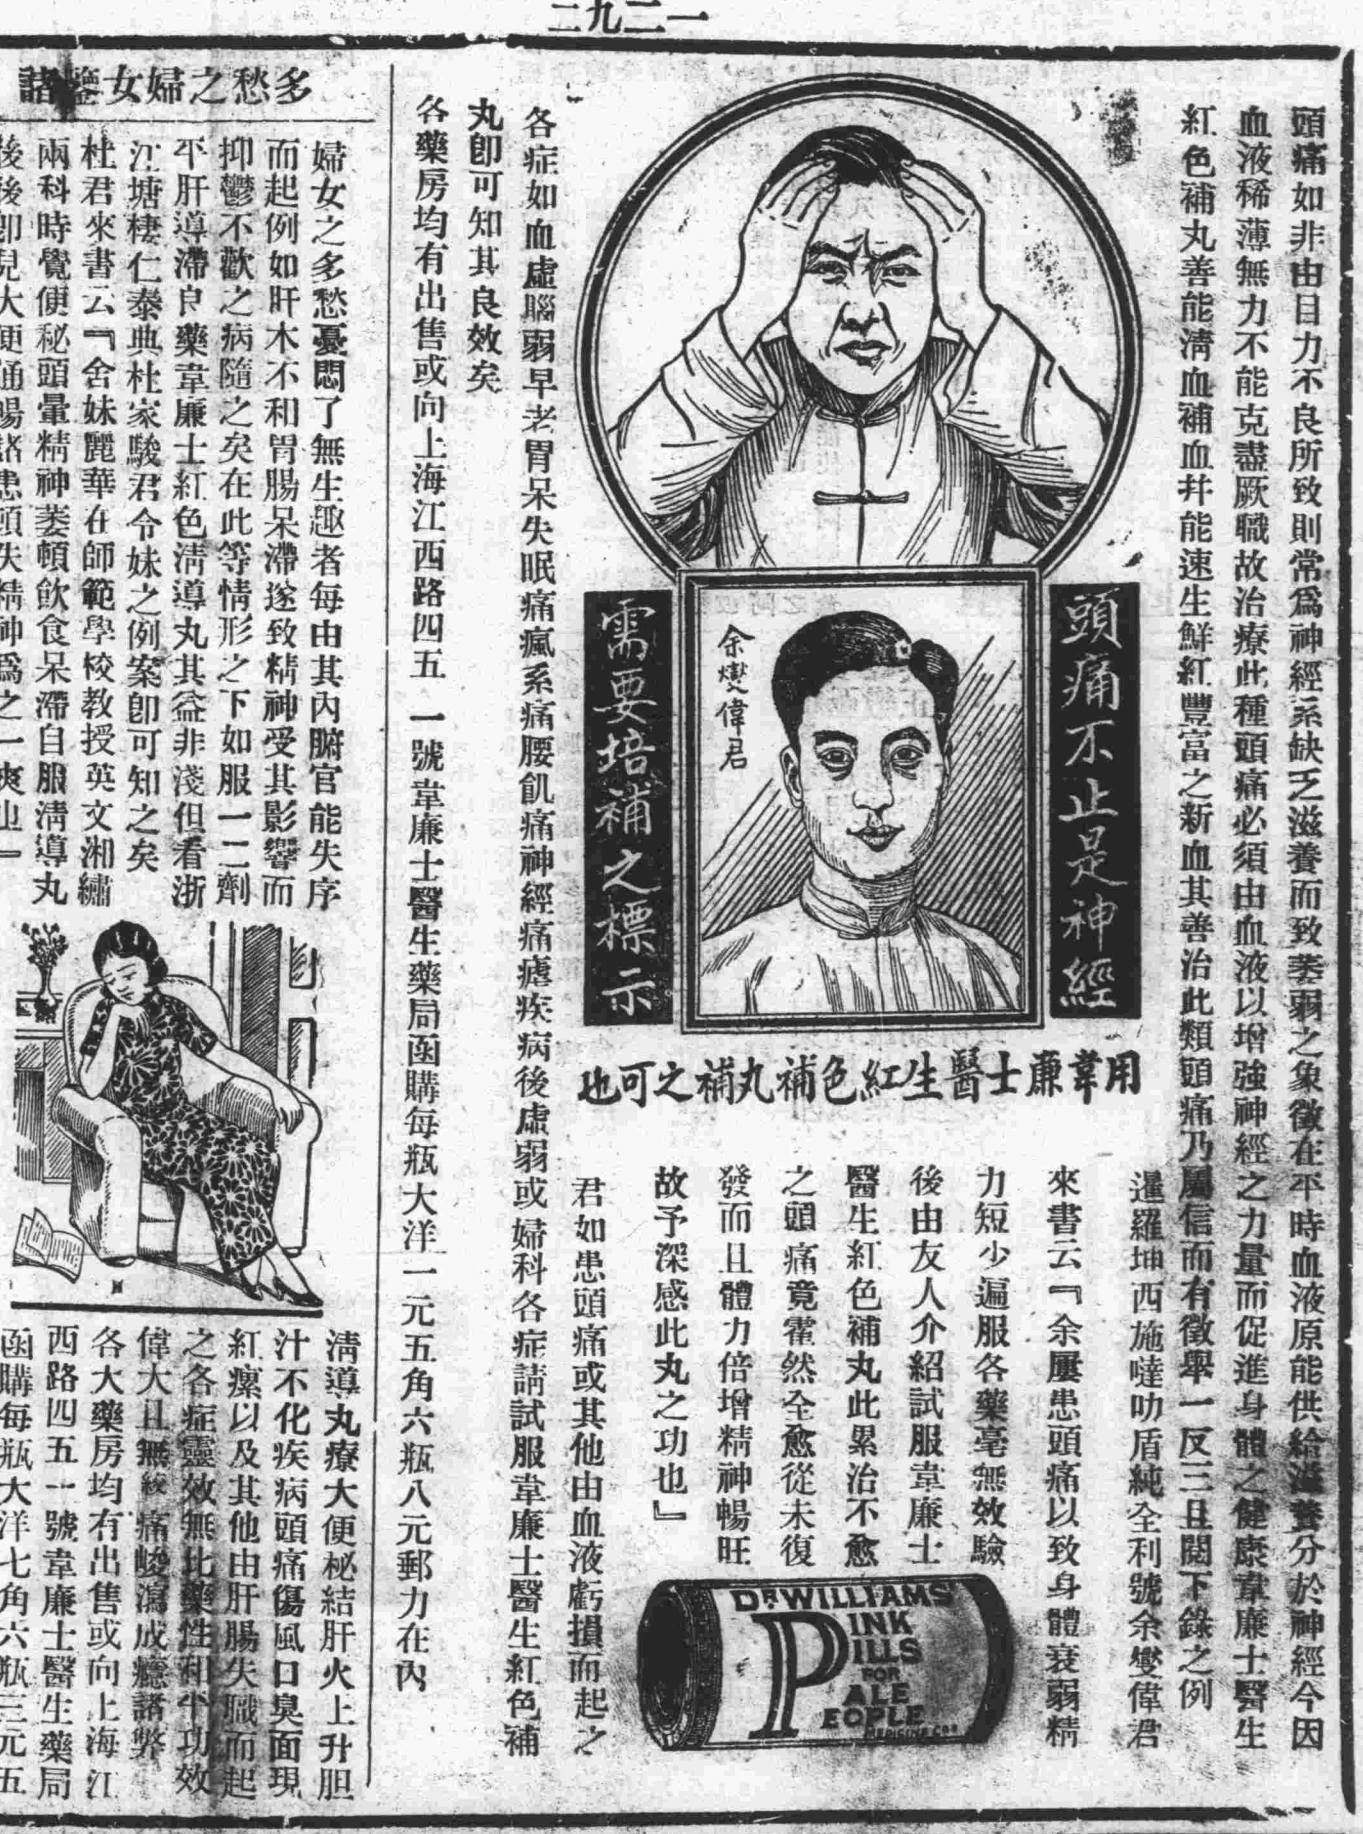 一二九二
頭痛如非由目力不良所致則常爲神經系缺乏滋養而致萎弱之象徵在平時血液原能供給滋養分於神經今因
血液稀薄無力不能克盡厥職故治療此種頭痛必須由血液以增強神經之力量而促進身體之健康韋廉士醫生
紅色補丸善能淸血補血幷能速生鮮紅豐富之新血其善治此類頭痛乃屬信而有徵舉一反三且閱下錄之例
頭痛不止是神經
需要培補之標示
余燮偉君
用韋廉士醫生紅色補丸補之可也
暹羅坤西施噠叻盾純全利號余燮偉君
來書云『余屢患頭痛以致身體衰弱精
力短少遍服各藥毫無效驗
後由友人介紹試服韋廉士
醫生紅色補丸此累治不愈
之頭痛竟霍然全愈從未復
發而且體力倍增精神暢旺
故予深感此丸之功也』
DR WILLIAMS'
PINK
PILLS
FOR
PALE
PEOPLE
MEDICINE CO
君如患頭痛或其他由血液虧損而起之
各症如血虛腦弱早老胃呆失眠痛瘋系痛腰飢痛神經痛瘧疾病後虛弱或婦科各症請試服韋廉士醫生紅色補
丸卽可知其良效矣
各藥房均有出售或向上海江西路四五一號韋廉士醫生藥局函購每瓶大洋一元五角六瓶八元郵力在內
多愁之婦女鑒諸
婦女之多愁憂悶了無生趣者每由其內臟官能失序
而起例如肝木不和胃腸呆滯遂致精神受其影響而
抑鬱不歡之病隨之矣在此等情形之下如服一二劑
平肝導滯良藥韋廉士紅色淸導丸其益非淺但看浙
江塘棲仁泰典杜家駿君令妹之例案卽可知之矣
杜君來書云『舍妹麗華在師範學校教授英文湘繡
兩科時覺便秘頭暈精神萎頓飲食呆滯自服淸導丸
後後卽見大便通暢諸患頓失精神爲之一爽也』
淸導丸療大便秘結肝火上升胆
汁不化疾病頭痛傷風口臭面現
紅瘰以及其他由肝腸失職而起
之各症靈效無比藥性和平功效
偉大且無絞痛峻瀉成癮諸弊
各大藥房均有出售或向上海江
西路四五一號韋廉士醫生藥局
函購每瓶大洋七角六瓶三元五